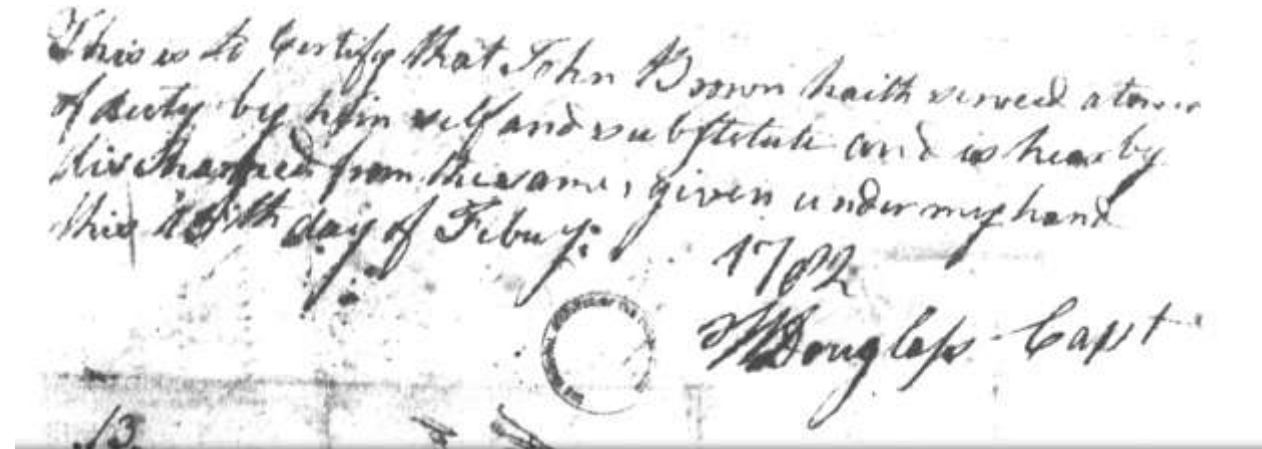 This is to Certify that John Brown haith served a tower
of duty by him self and subſtitute and is hearby
discharged from the same, given under my hand
this 15th day of Febuy:
1782
Douglaſs Capt
13